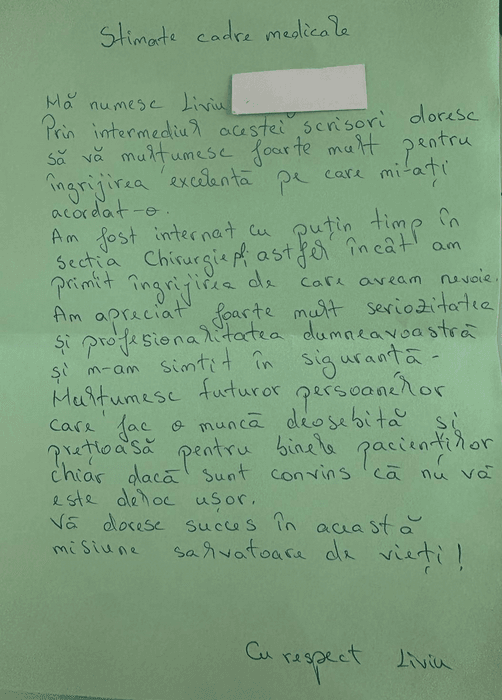 Stimate cadre medicale
Mă numesc Liviu
Prin intermediul acestei scrisori doresc
să vă mulțumesc foarte mult pentru
îngrijirea excelentă pe care mi-ați
acordat-o.
Am fost internat cu puțin timp în
secția Chirurgie și astfel încât am
primit îngrijirea de care aveam nevoie.
Am apreciat foarte mult seriozitatea
și profesionalitatea dumneavoastră
și m-am simțit în siguranță.
Mulțumesc tuturor persoanelor
care fac o muncă deosebită și
prețioasă pentru binele pacienților
chiar dacă sunt convins că nu vă
este deloc ușor.
Vă doresc succes în această
misiune salvatoare de vieți!
Cu respect Liviu